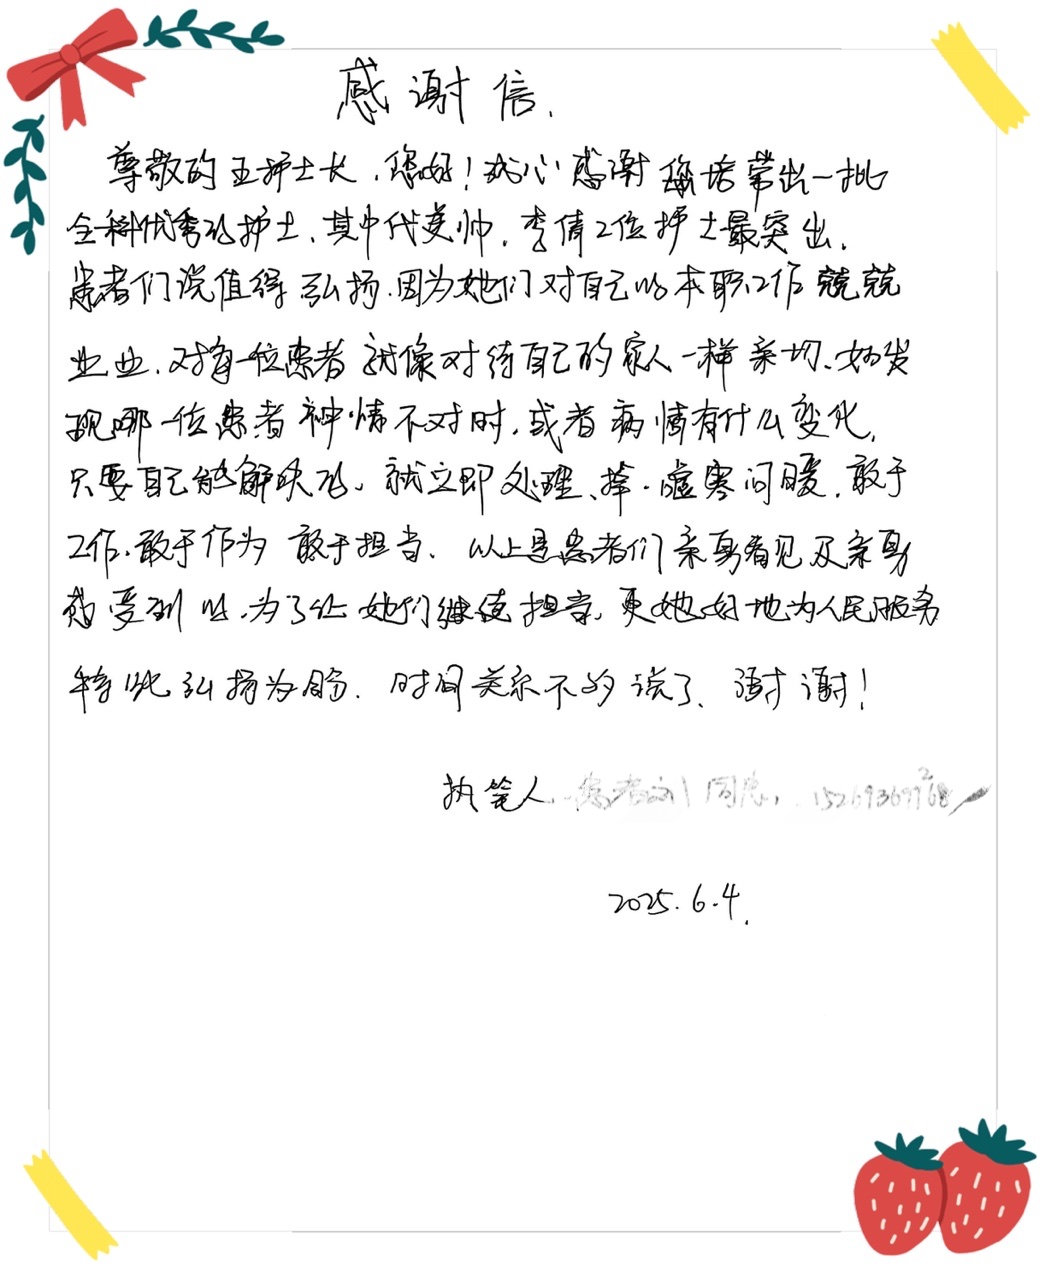 感谢信.
尊敬的王护士长,您好!衷心感谢您培带出一批
全科优秀的护士,其中代莫帅,李倩2位护士最突出.
患者们说值得弘扬.因为她们对自己的本职工作兢兢
业业.对每一位患者就像对待自己的家人一样亲切.如发
现哪一位患者神情不对时,或者病情有什么变化,
只要自己能解决的,就立即处理、嘘寒问暖,敢于
工作.敢于作为 敢于担当.以上是患者们亲身看见及亲身
感受到的,为了让她们继续担当,更她好地为人民服务
特此弘扬为盼.时间关系不多说了、谢谢!
执笔人 患者刘
2025.6.4.